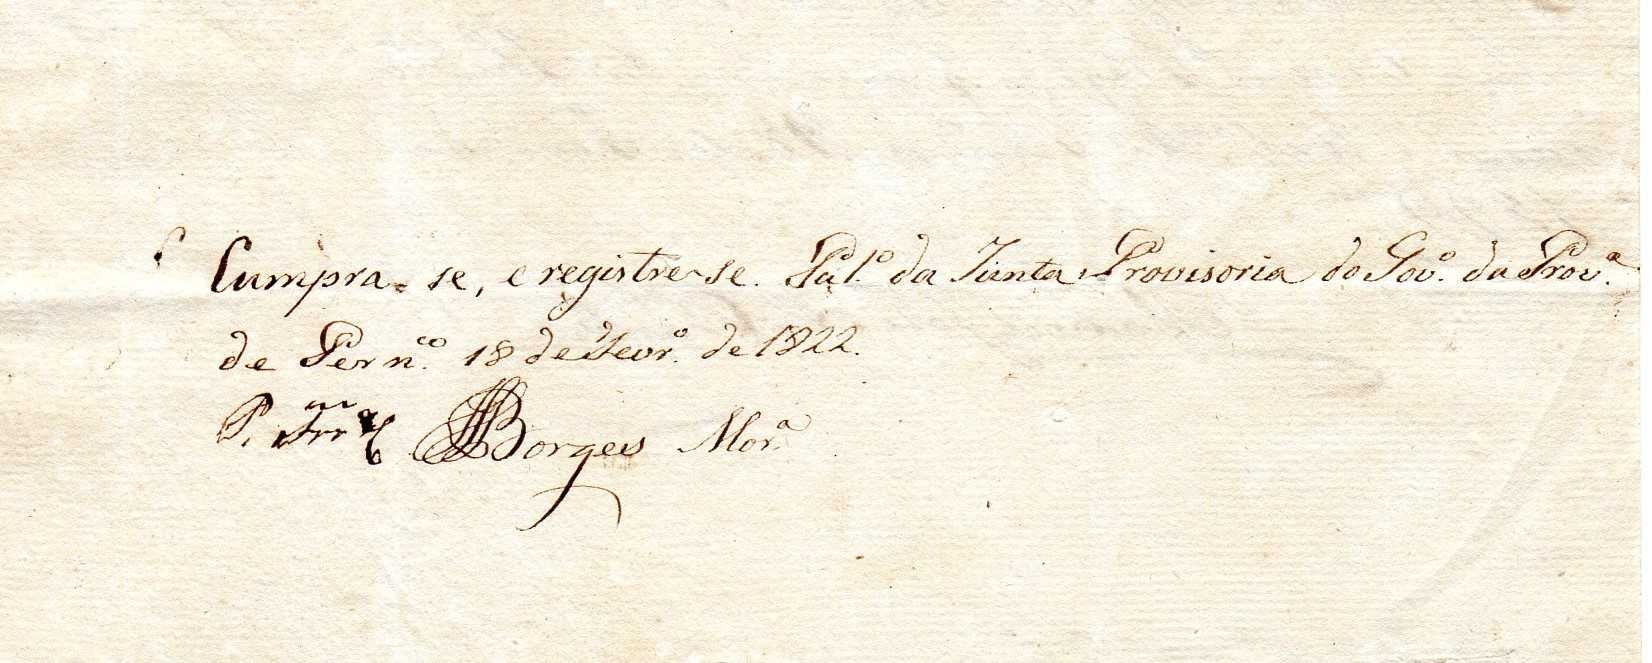 Cumpra-se, e registre-se. Pal.º da Junta Provisoria do Gov.º da Prov.ª
de Pern.co 18 de Fevr.º de 1822.
P. Borges Mor.ª